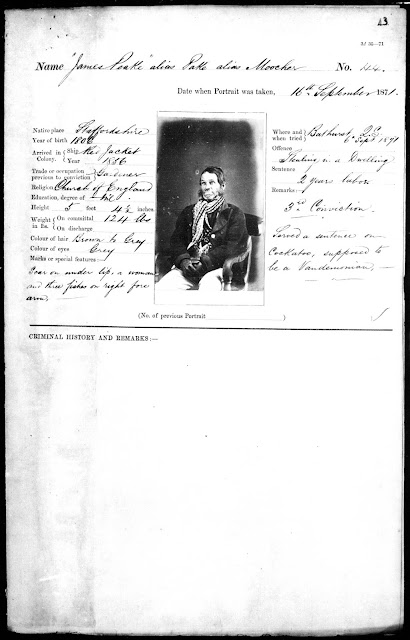 13
3/10—71
Name "James Peake" alias Pake alias Moocher No. 44.
Date when Portrait was taken, 16th September 1871.
Native place Staffordshire
Year of birth 1808
Arrived in Colony. { Ship Red Jacket
Year 1856
Trade or occupation previous to conviction } Gardener
Religion Church of England
Education, degree of Nil
Height 5 feet 4½ inches
Weight in lbs. { On committal 124 lbs
On discharge
Colour of hair Brown to Grey
Colour of eyes Grey
Marks or special features:—
Scar on under lip, a woman
and three fishes on right fore
arm.
Where and when tried } Bathurst Q.S.
6th Sept 1871
Offence
Stealing in a Dwelling
Sentence
2 years labor
Remarks:
3rd Conviction.
Served a sentence on
Cockatoo, supposed to
be a Vandemonian.—
(No. of previous Portrait )
CRIMINAL HISTORY AND REMARKS:—